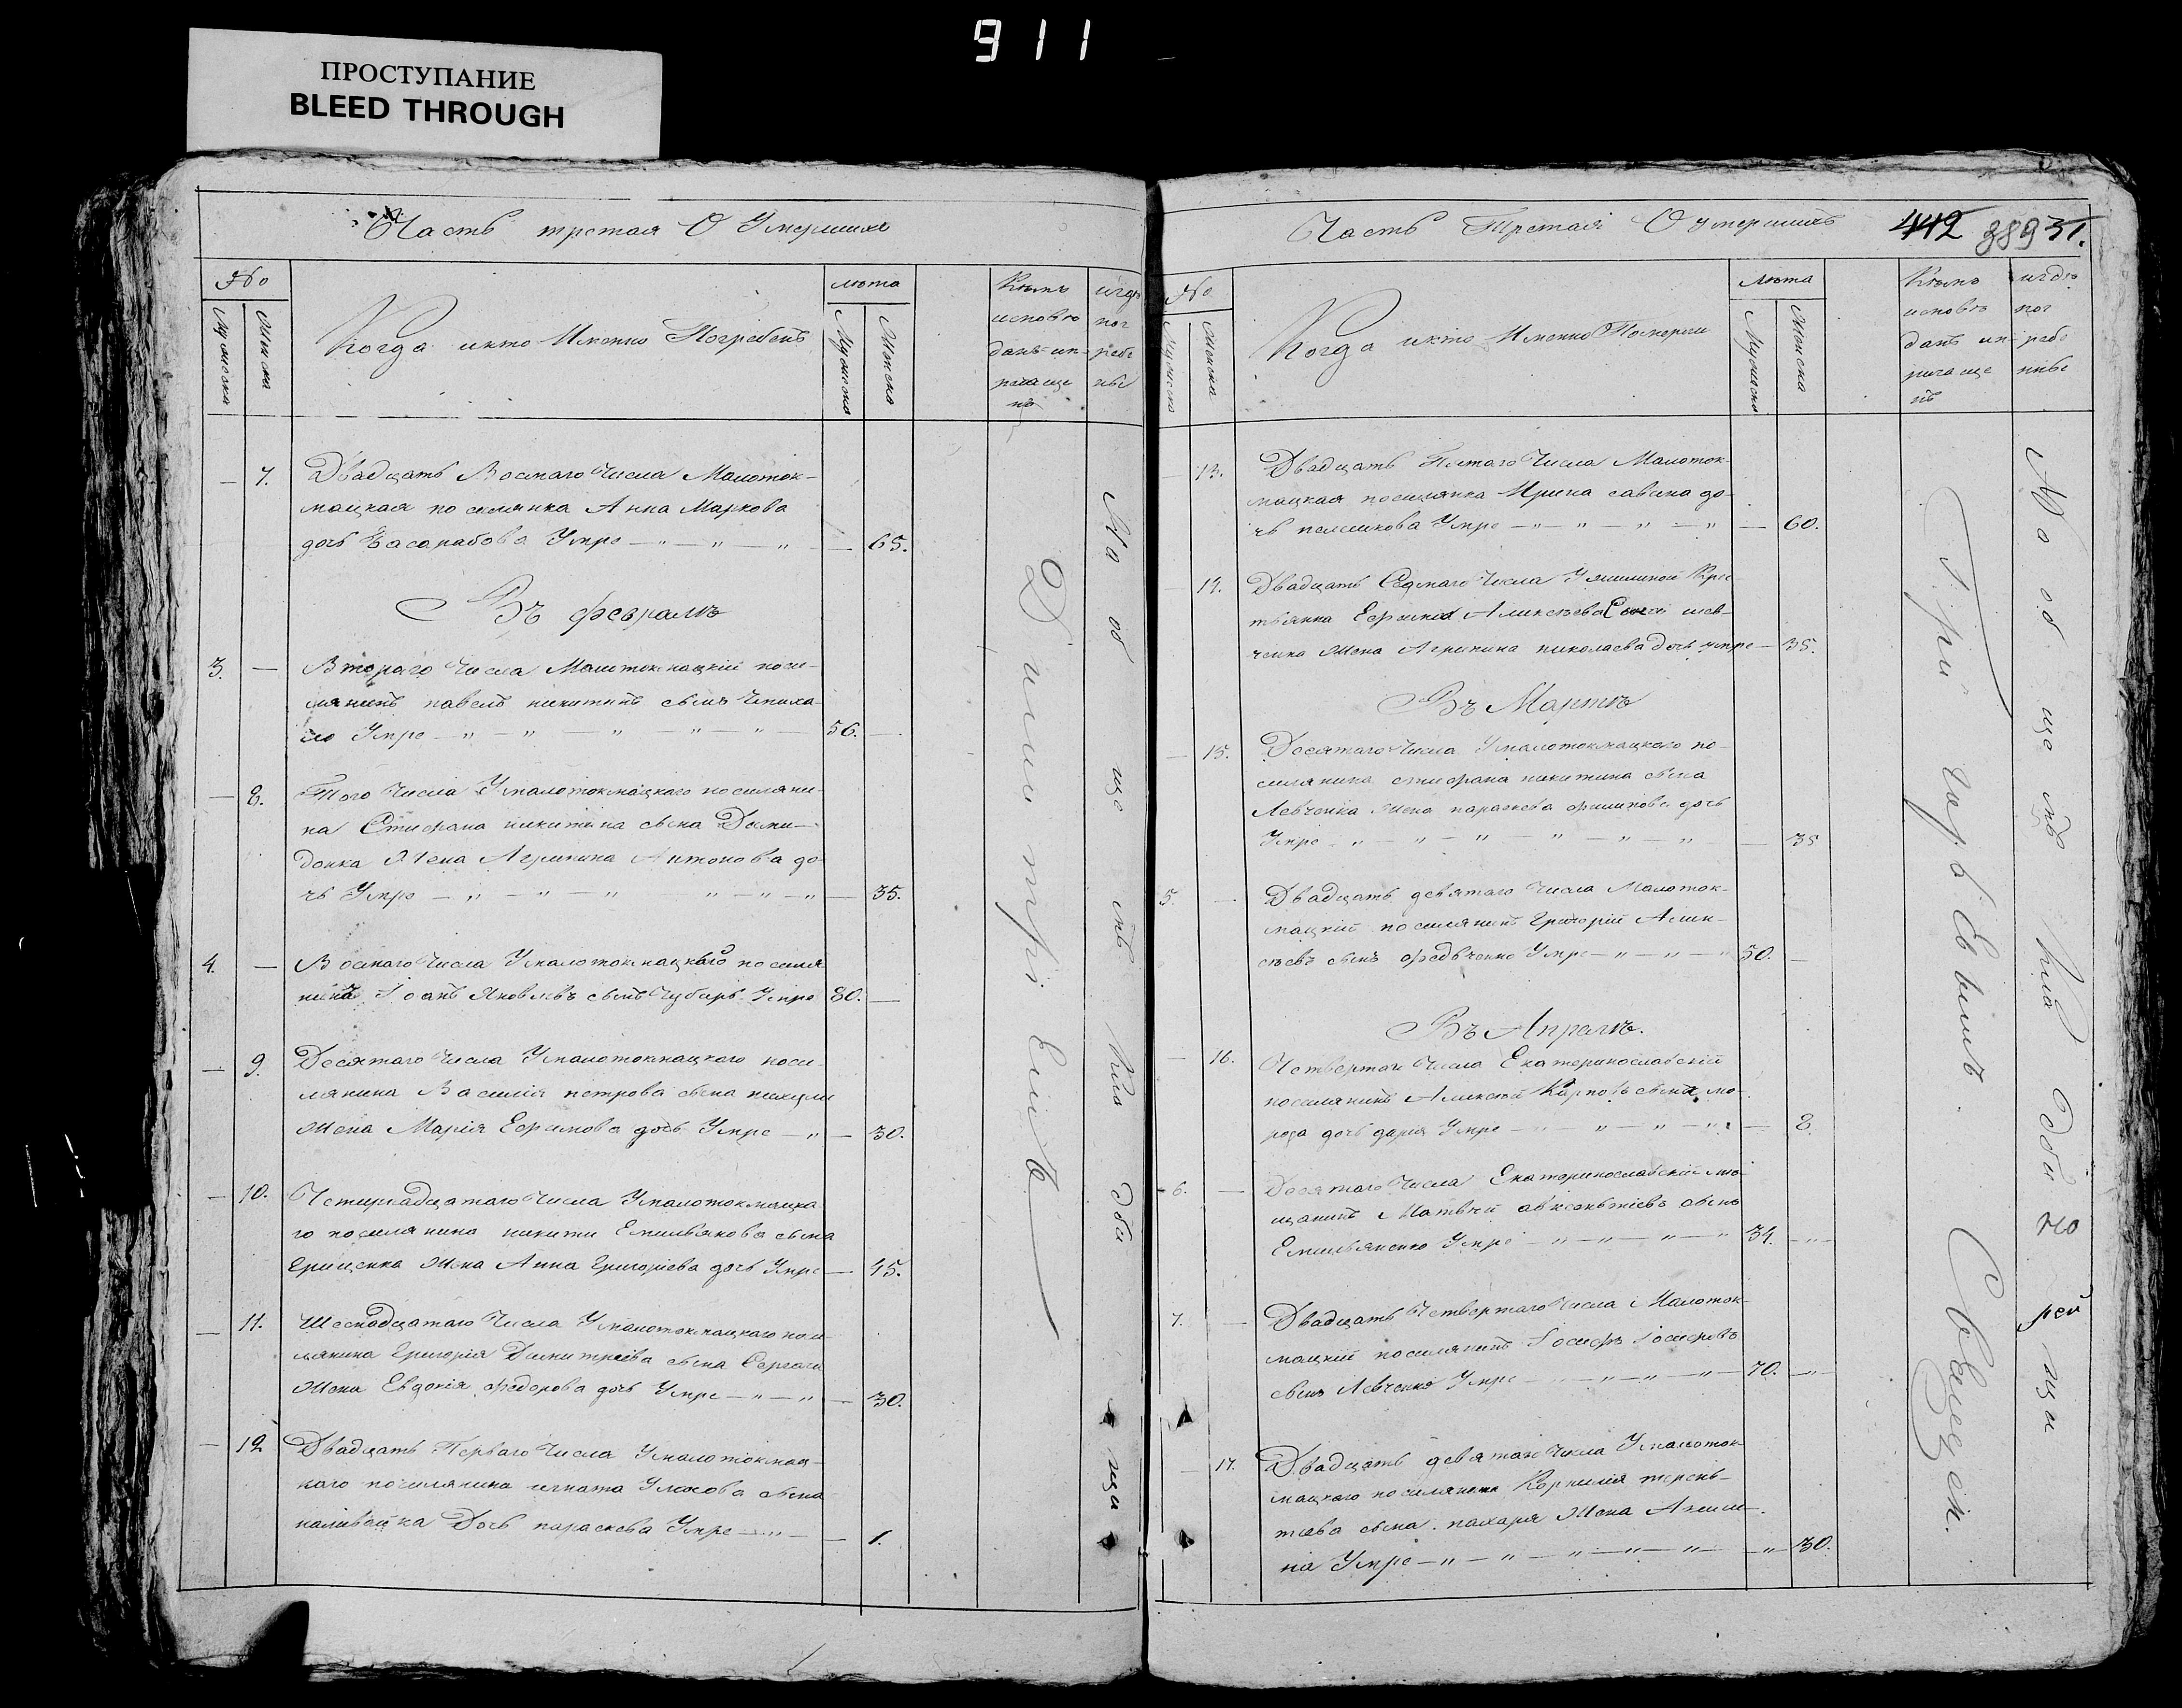 911
ПРОСТУПАНИЕ
BLEED THROUGH
Часть третая О Умершихъ
№
Мужеска
Женска
Когда икто Имянно Погребенъ
лѣта
Мужеска
Женска
Кѣмъ
исповѣ
данъ ип
играѣ
пог
ребе
ны
7.
Двадцать Восмаго Числа Малоток-
мацкая поселянка Анна Маркова
дочь Басарабова Умре
65.
Въ февралѣ
3.
Втораго Числа Малитокмацкій посе-
лянинъ павелъ никитинъ сынъ
Умре
56.
8.
Того Числа Умалотокмацкаго поселяни-
на Стифана никитина сына Деми-
денка Жена Агрипина Антонова до-
чь Умре
35.
4.
Восмаго Числа Умалотокмацкаго поселя
нинъ Іоанъ Яковлевъ сынъ Чубарь Умре
80.
9.
Десятаго Числа Умалотокмацкаго посе-
лянина Василія петрова сына
Жена Марія Ефимова дочь Умре
30.
10.
Четырнадцатаго Числа Умалотокмацка
го поселянина никити Емильянова сына
Грищенка Жена Анна Григориева дочь Умре
45.
11.
Шеснадцатаго Числа Умалотокмацкаго посе-
лянина Григорія Димитриева сына
Жена Евдокія федорова дочь Умре
30.
12
Двадцать Перваго Числа Умалотокмац-
каго поселянина игната сына
наливайка Дочь параскева Умре
1.
Димитрі
На об ще мъ Кла дби ща
Часть Третая О умершихъ
442 389 31.
№
Мужеска
Женска
Когда икто Имянно Померли
лѣта
Мужеска
Женска
Кѣмъ
исповѣ
данъ ип
рича ще
нъ
игдѣ
пог
ребе
ныи
13.
Двадцать Пятаго Числа Малоток-
мацкая поселянка Ирина савина до-
чь Умре
60.
14.
Двадцать Седмаго Числа Крес
тьянка Ефима Аликсѣева Сына шев-
ченка Жена Агрипина николаева дочь умре
35.
Въ Мартѣ
15.
Десятаго Числа Умалотокмацкаго по-
селянина стифана никитина сына
Левченка Жена параскева филипова дочь
Умре
35
5.
Двадцать девятаго Числа Малоток-
мацкій поселянинъ Григорій Алик-
сѣевъ сынъ федченко Умре
50.
Въ Апрелѣ.
16.
Четвертаго Числа Екатеринославскій
поселянинъ Аликсей Карповъ сына мо-
роза дочь дария Умре
8.
6.
Десятаго Числа Екатеринославскій мѣ-
щанинъ Матвѣй авксентіевъ сынъ
Емильяненко Умре
34.
7.
Двадцать Четвертаго Числа Малоток-
мацкій поселянинъ Іосифъ Іосифовъ
сынъ Левченко Умре
70.
17.
Двадцать девятаго Числа Умалоток-
мацкаго поселянина Корнилія терень-
тіева сына пахаря Жена Акили-
на Умре
30.
Свящем.
На об ще мъ Кла дби